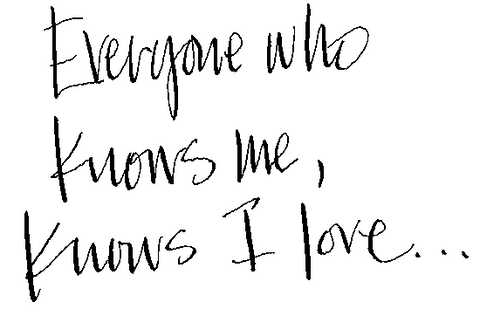 Everyone who
knows me,
knows I love...